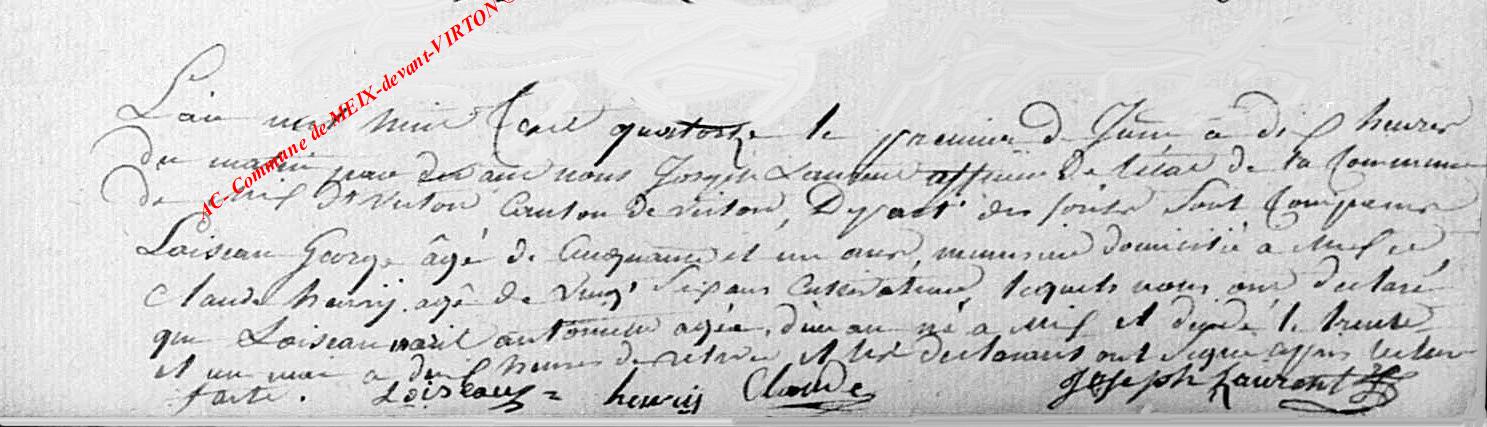 AC-Commune de MEIX-devant-VIRTON@
L'an mil huit Cent quatorze le premier de Juin à dix heures
du matin par devant nous Joseph Laurent officier de l'état de la Commune
de Meix Dt Virton Canton de virton, Depart. des forêts Sont Comparus
Loiseau George âgé de Cinquante et un ans, domicilié à Meix et
Claude henrij agé de vingt Six ans Cultivateur, lesquels nous ont declaré
que Loiseau marie antoinette agée d'un an né a Meix et dcedé le trente
et un mai a dix heures de relevée et les declarant ont Signé apres lecture
faite. Loiseau = henrij Claude Joseph Laurent